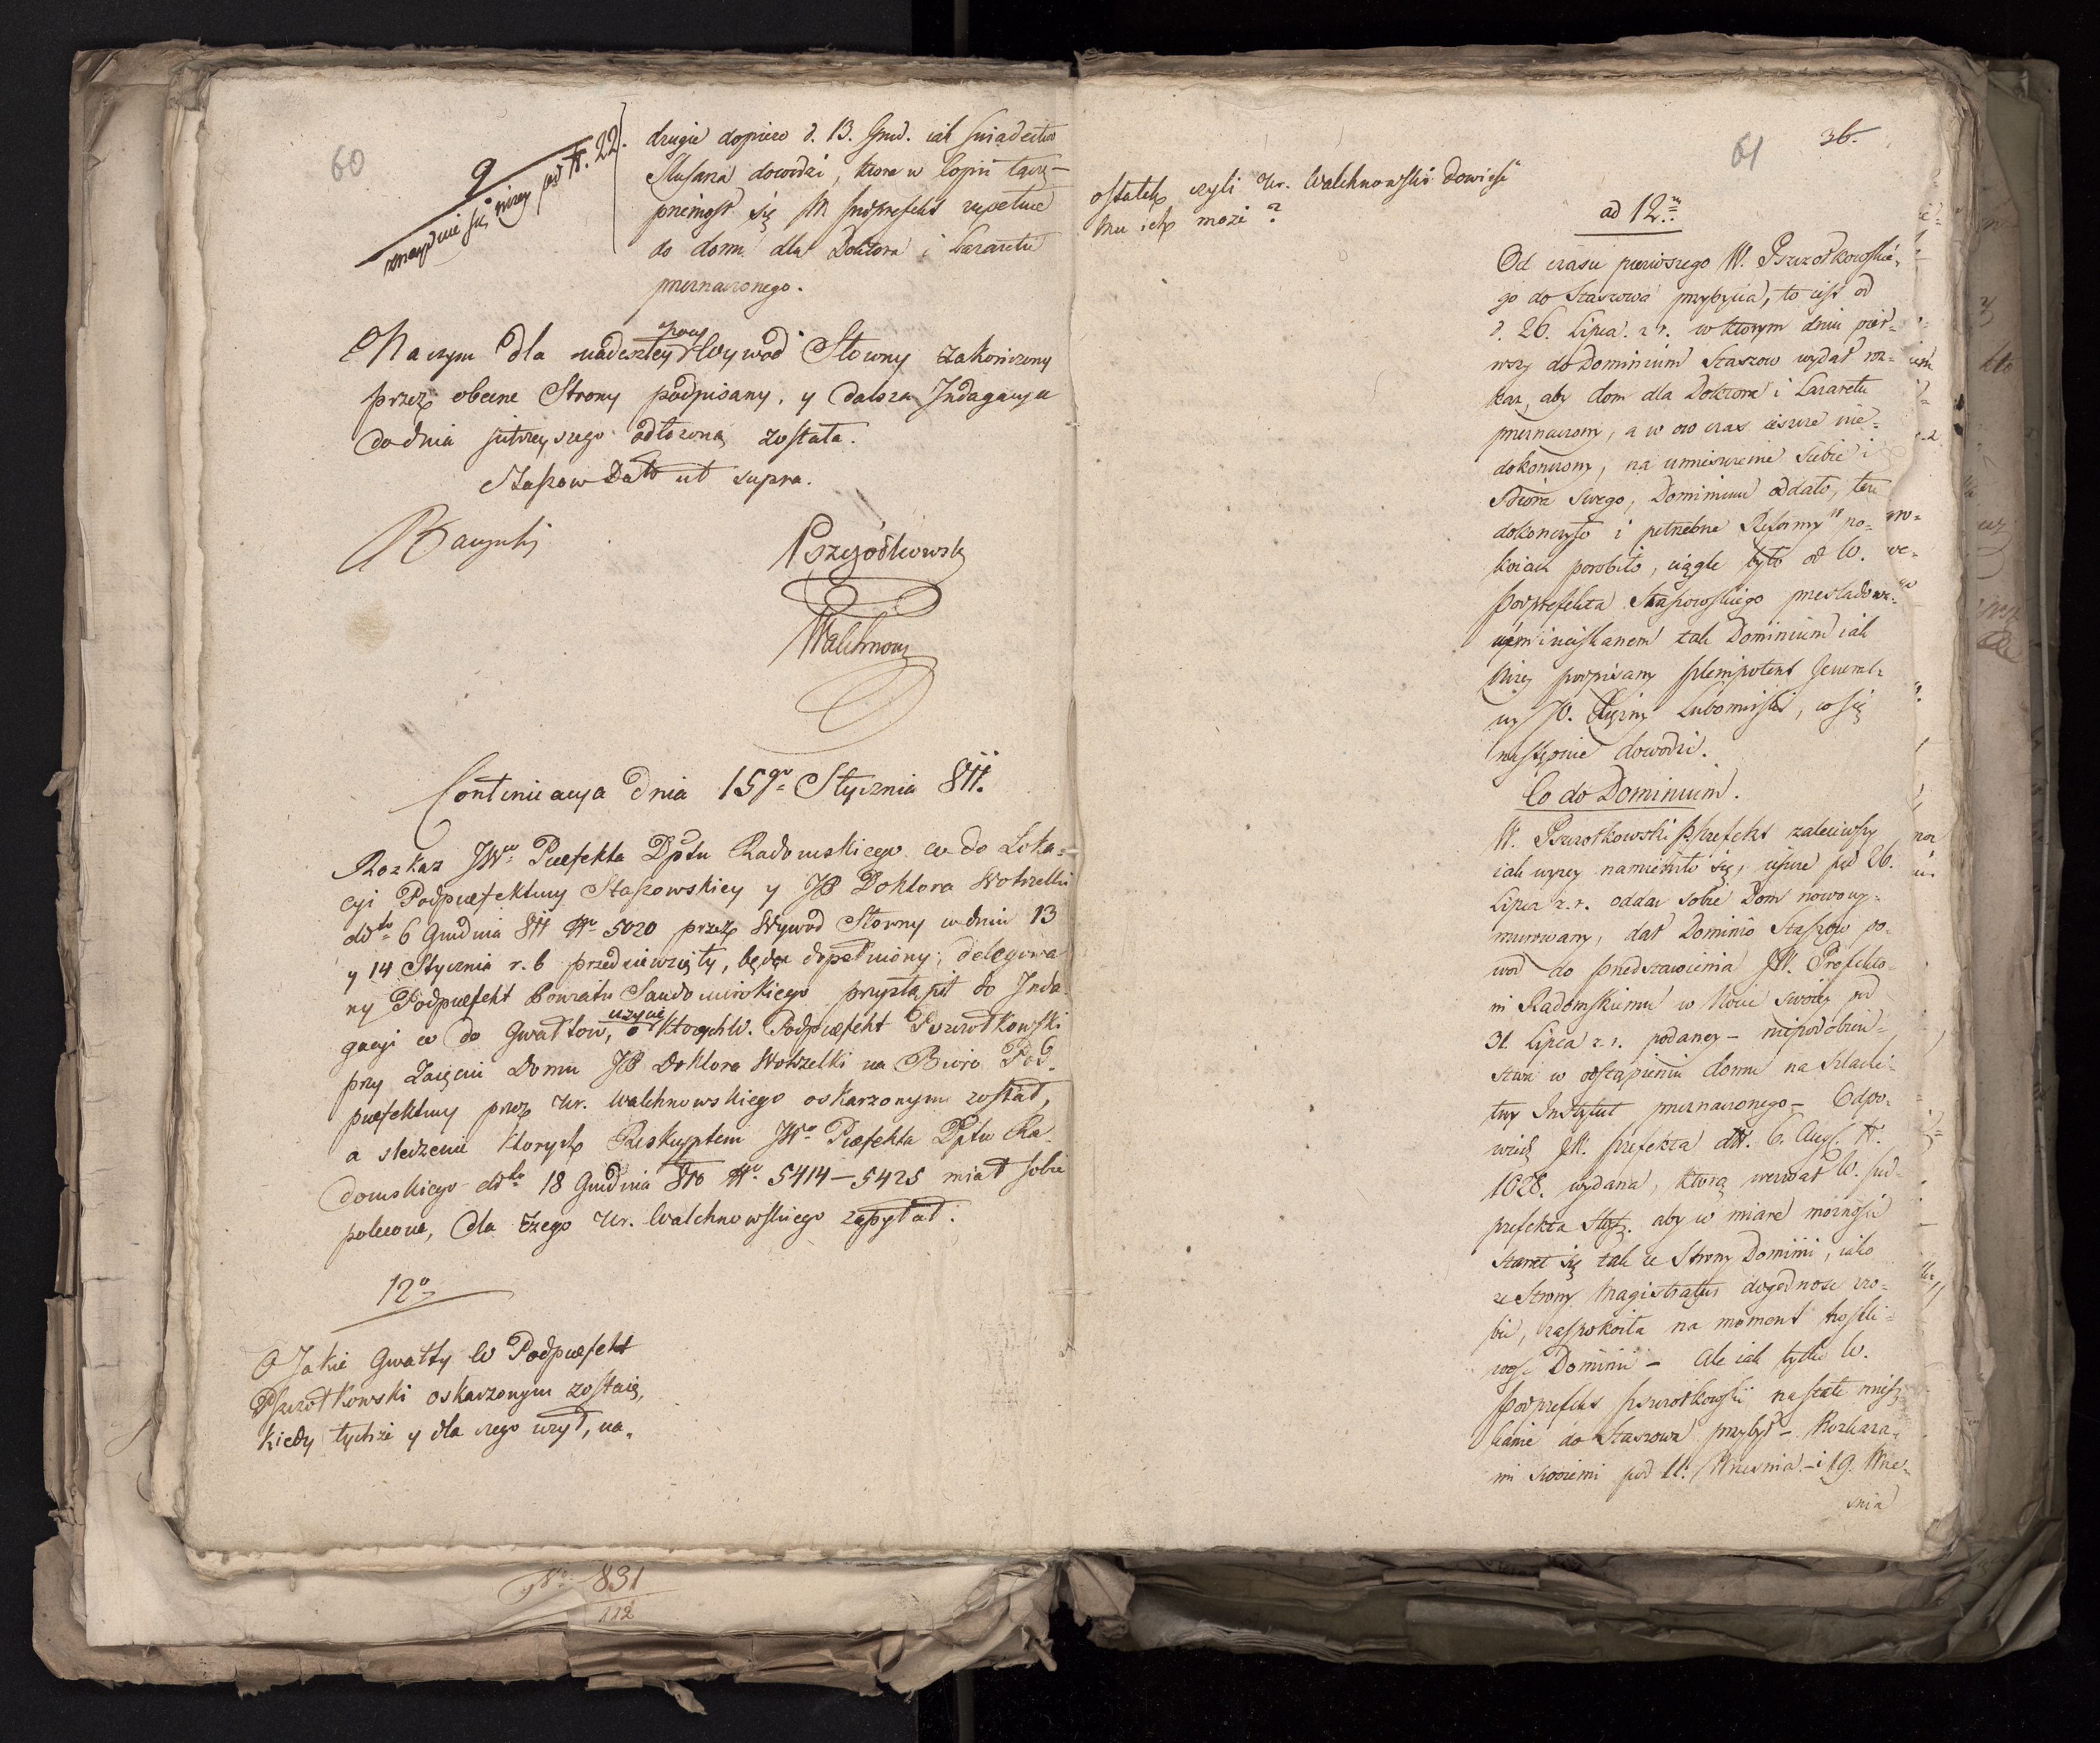 60
9
znayduie się niżey pod N. 22.
drugie dopiero d. 13. Grud. iak swiadectwo
Slusarza dowodzi, ktore w Copii łączę –
przeniosł się JW Podprefekt zupełnie
do domu dla Doktora i Lazaretu
przeznaczonego.
Na czym dla nadeszłey pory Wywod Słowny zakończony
przez obecne Strony podpisany, y dalsza Indagacya
do dnia jutrzeyszego odłożoną została.
Staszow Dato ut supra.
Pszczółkowski
Walchnowski
Continuacya dnia 15go Stycznia 811.
Rozkaz JWo Prefekta Dptu Radomskiego co do Loka=
cyi Podprefektury Staszowskiey y JP Doktora Wotrzelki
ddto 6 Grudnia 811 No 5020 przez Wywod Słowny w dniu 13
y 14 Stycznia r. b przedsiewzięty, będąc dopełniony, delegowa
ny Podprefekt Powiatu Sandomirskiego przystąpił do Inda
gacyi co do Gwałtow, o użycie ktorych W. Podprefekt Pszczołkowski
przy Zaięciu Domu JP Doktora Wotrzelki na Biuro Pod.
prefektury przez Ur. Walchnowskiego oskarzonym został,
a śledzenie ktorych Reskryptem JWo Prefekta Dptu Ra
domskiego ddto 18 Grudnia 810 No 5414 – 5425 miał sobie
polecone, dla czego Ur. Walchnowskiego zapytał.
12o
O Jakie Gwałty W Podprefekt
Pszczołkowski oskarzonym zostaię,
kiedy tychże y dla czego użył, na„
No 831
112
61
36.
ostatek czyli Ur. Walchnowski dowieść
mu ich może?
ad 12m
Od czasu pierwszego W. Pszczołkowskie„
go do Staszowa przybycia, to iest od
d. 26. Lipca. z r. w ktorym dniu pier=
wszy do Dominium Staszow wydał roz=
kaz, aby dom dla Doktora i Lazaretu
przeznaczony, a w ow czas ieszcze nie=
dokonczony, na umieszczenie Siebie i
Biora Swego, Dominium oddało, też
dokonczyło i potrzebne Reformy w po=
koiach porobiło, ciągle było od W.
Podprefekta Staszowskiego przesladowa=
niem i nciskanem tak Dominium iak
niżey podpisany Plenipotent General=
ny JO. Xiężny Lubomirski, co się
następnie dowodzi.
Co do Dominium.
W. Pszczołkowski Pprefekt zaleciwszy
iak wyżey namieniło się, ieszcze pod 26.
Lipca z. r. oddać sobie Dom nowo wy=
murowany, dał Dominio Staszow po=
wod do przedstawienia JW. Prefekto=
wi Radomskiemu w Nocie swoiey pod
31. Lipca z. r. podaney – niepodobień=
stwa w odstąpieniu domu na Szlache=
tny Instytut przeznaczonego – Odpo=
wiedz JW. Prefekta dd. 6. Aug. N.
1628. wydana, ktorą wezwał W. Pod=
prefekta Stasz. aby w miarę możności
starał się tak ze Strony Dominii, iako
ze Strony Magistratus dogodnosc zro=
bić, zaspokoiła na moment troskli=
wosc Dominii – Ale iak tylko W.
Podprefekt Pszczołkowski na stałe miesz
kanie do Staszowa przybył – Rozkaza=
mi swoiemi pod 11. Wrzesnia – i 19. Wrze=
snia